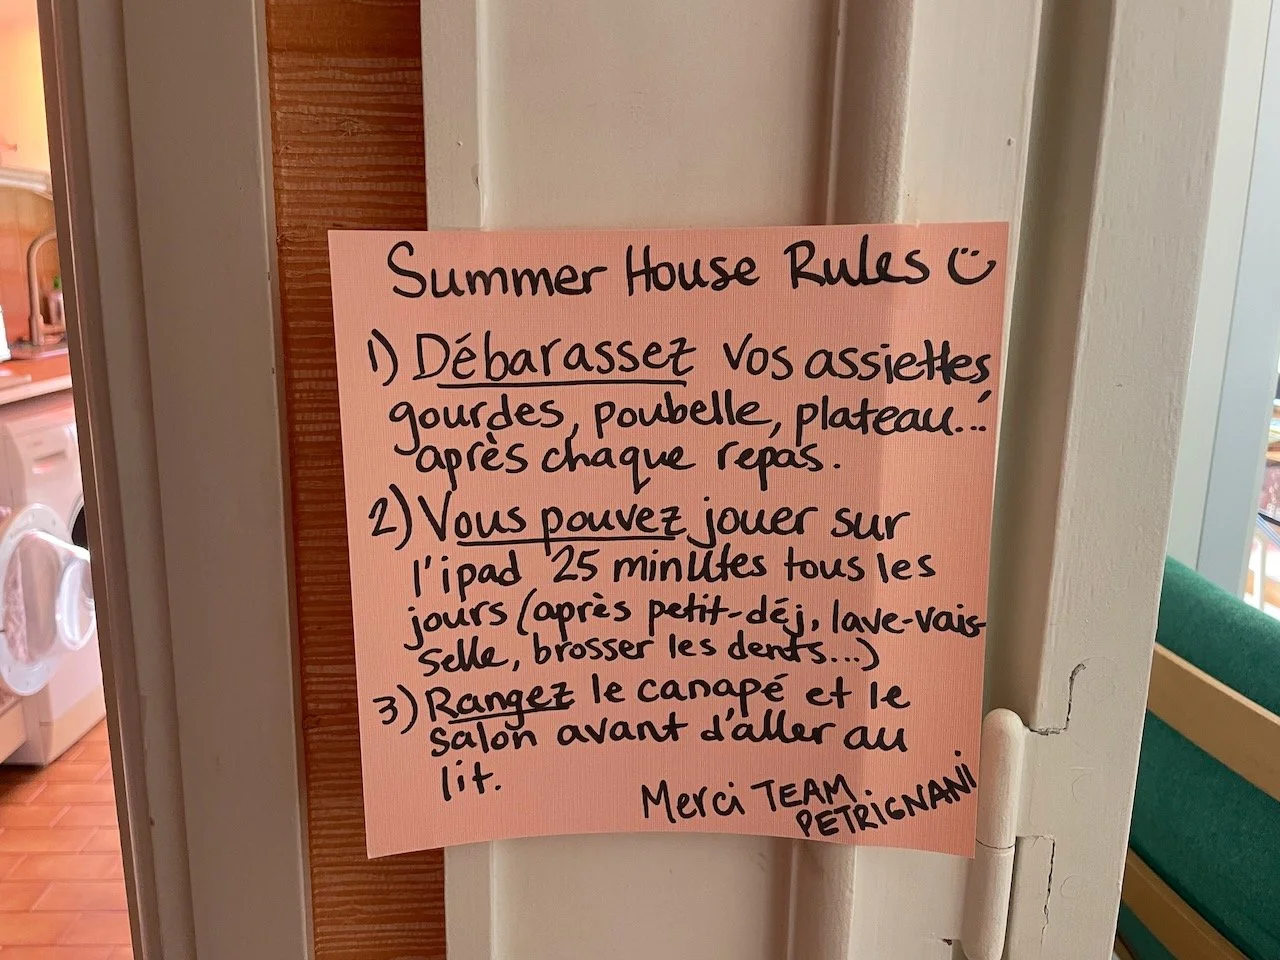 Summer House Rules
1) Débarassez vos assiettes
gourdes, poubelle, plateau...
après chaque repas.
2) Vous pouvez jouer sur
l'ipad 25 minutes tous les
jours (après petit-déj, lave-vais-
selle, brosser les dents...)
3) Rangez le canapé et le
salon avant d'aller au
lit.
Merci TEAM
PETRIGNANI